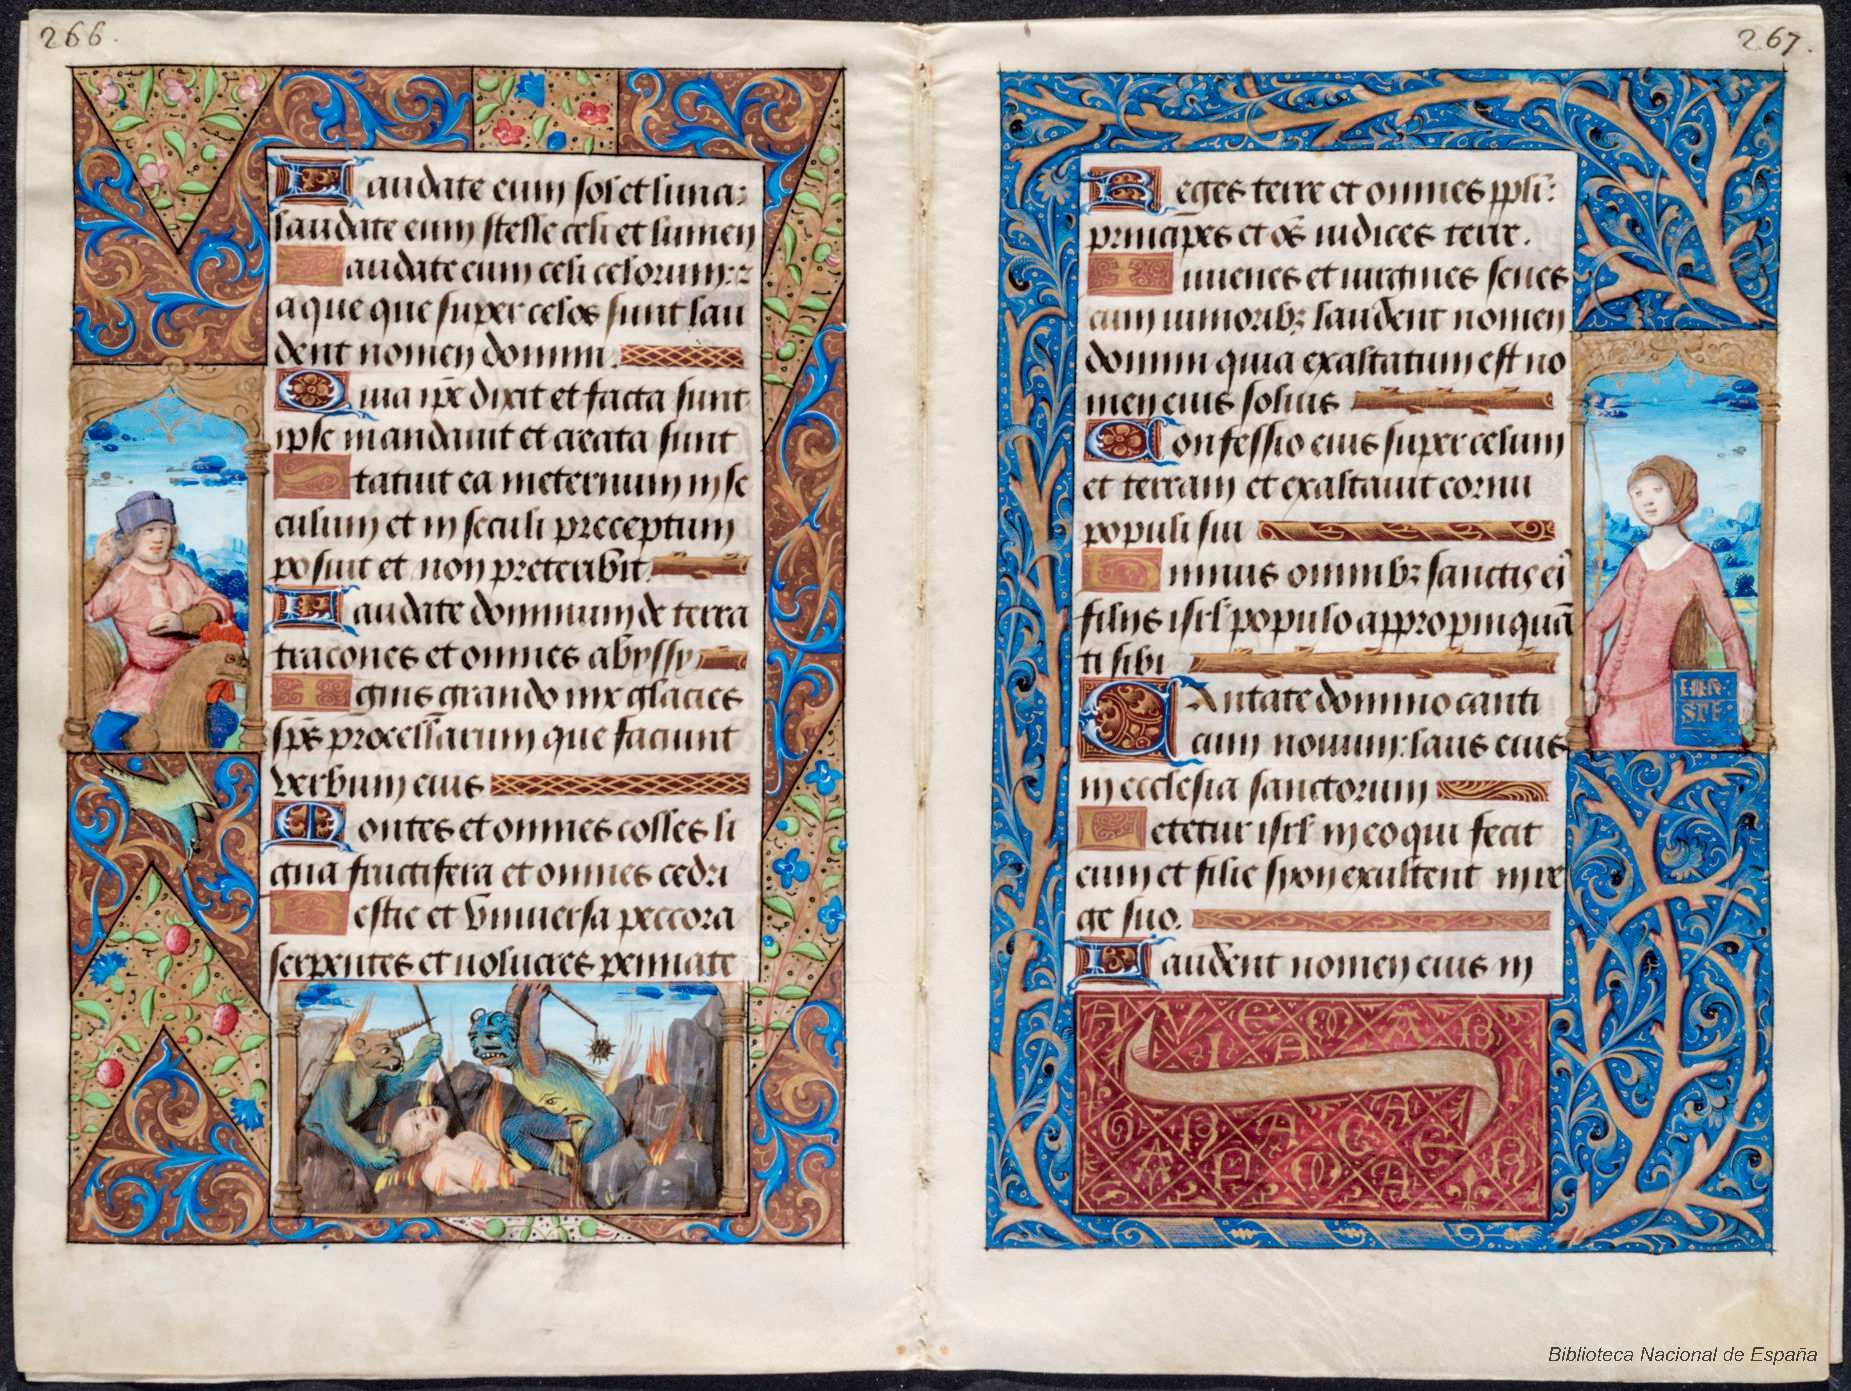 266.
Laudate eum sol et luna:
laudate eum stelle celi et lumen
Laudate eum celi celorum: z
aque que super celos sunt lau
dent nomen domini.
Quia ipē dixit et facta sunt
ipse mandauit et creata sunt
Statuit ea ineternum in se
culum et in seculi preceptum
posuit et non preteribit.
Laudate dominum de terra
tracones et omnes abyssy
Ignis grando nix glacies
sps procellarum que faciunt
verbum eius
Montes et omnes colles li
gna fructifera et omnes cedri
Bestie et vniuersa peccora
serpentes et uolucres pennate
267.
Reges terre et omnes ppli:
principes et oēs iudices terre.
Iuuenes et uirgines senes
cum iunioribz laudent nomen
domini quia exaltatum est no
men eius solius
Confessio eius super celum
et terram et exaltauit cornu
populi sui
Himnus omnibz sanctis ei
filiis isrl populo appropinquā
ti sibi
CAntate domino canti
cum nouum: laus eius
in ecclesia sanctorum
Letetur isrl in eo qui fecit
eum et filie syon exultent in re
ge suo.
Laudent nomen eius in
Biblioteca Nacional de España